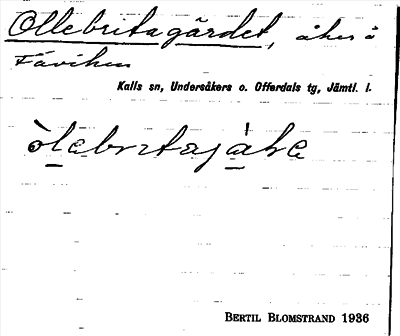 Ollebritagärdet, åker å
Fäviken
Kalls sn, Undersåkers o. Offerdals tg, Jämtl. l.
òlebritajàḷe
BERTIL BLOMSTRAND 1936